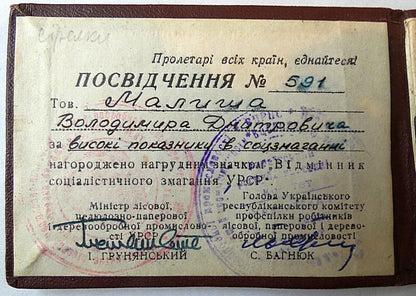 Пролетарі всіх країн, єднайтеся!
ПОСВІДЧЕННЯ № 591
Тов. Малиша
Володимира Дмитровича
за високі показники в соцзмаганні
нагороджено нагрудним значком Відмінник
соціалістичного змагання УРСР.
Міністр лісової,
целюлозно-паперової
і деревообробної промисло-
сті УРСР
І. ГРУНЯНСЬКИЙ
Голова Українського
республіканського комітету
профспілки робітників
лісової, паперової і дерево-
обробної промисловості
С. БАГНЮК